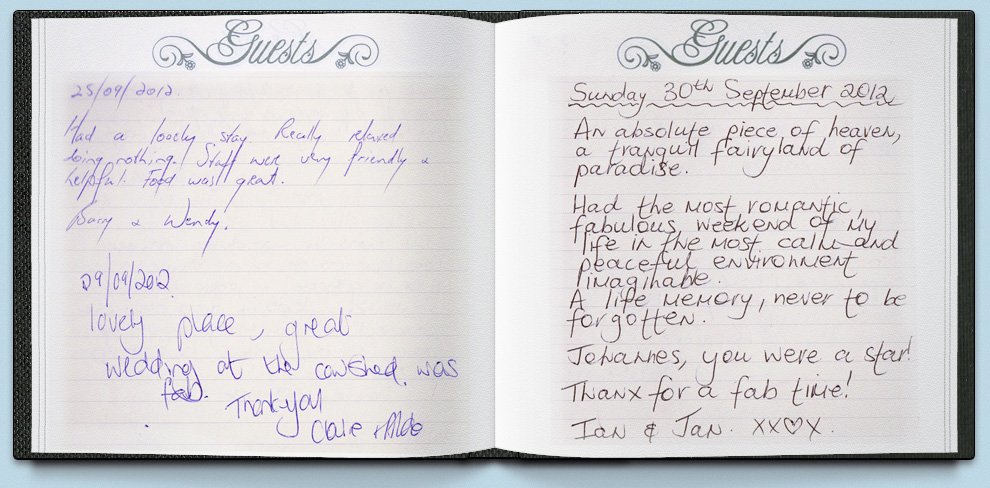 Guests
25/09/2012.
Had a lovely stay Really relaxed
doing nothing! Staff were very friendly &
helpful. Food was great.
Barry & Wendy!
29/09/2012.
lovely place, great
wedding at the cowshed. was
fab.
Thank you
Claire & Aldo
Guests
Sunday 30th September 2012
An absolute piece of heaven,
a tranquil fairyland of
paradise.
Had the most romantic,
fabulous, weekend of my
life in the most calm and
peaceful environment
imaginable.
A life memory, never to be
forgotten.
Johannes, you were a star!
Thanx for a fab time!
Ian & Jan. xx♡x.